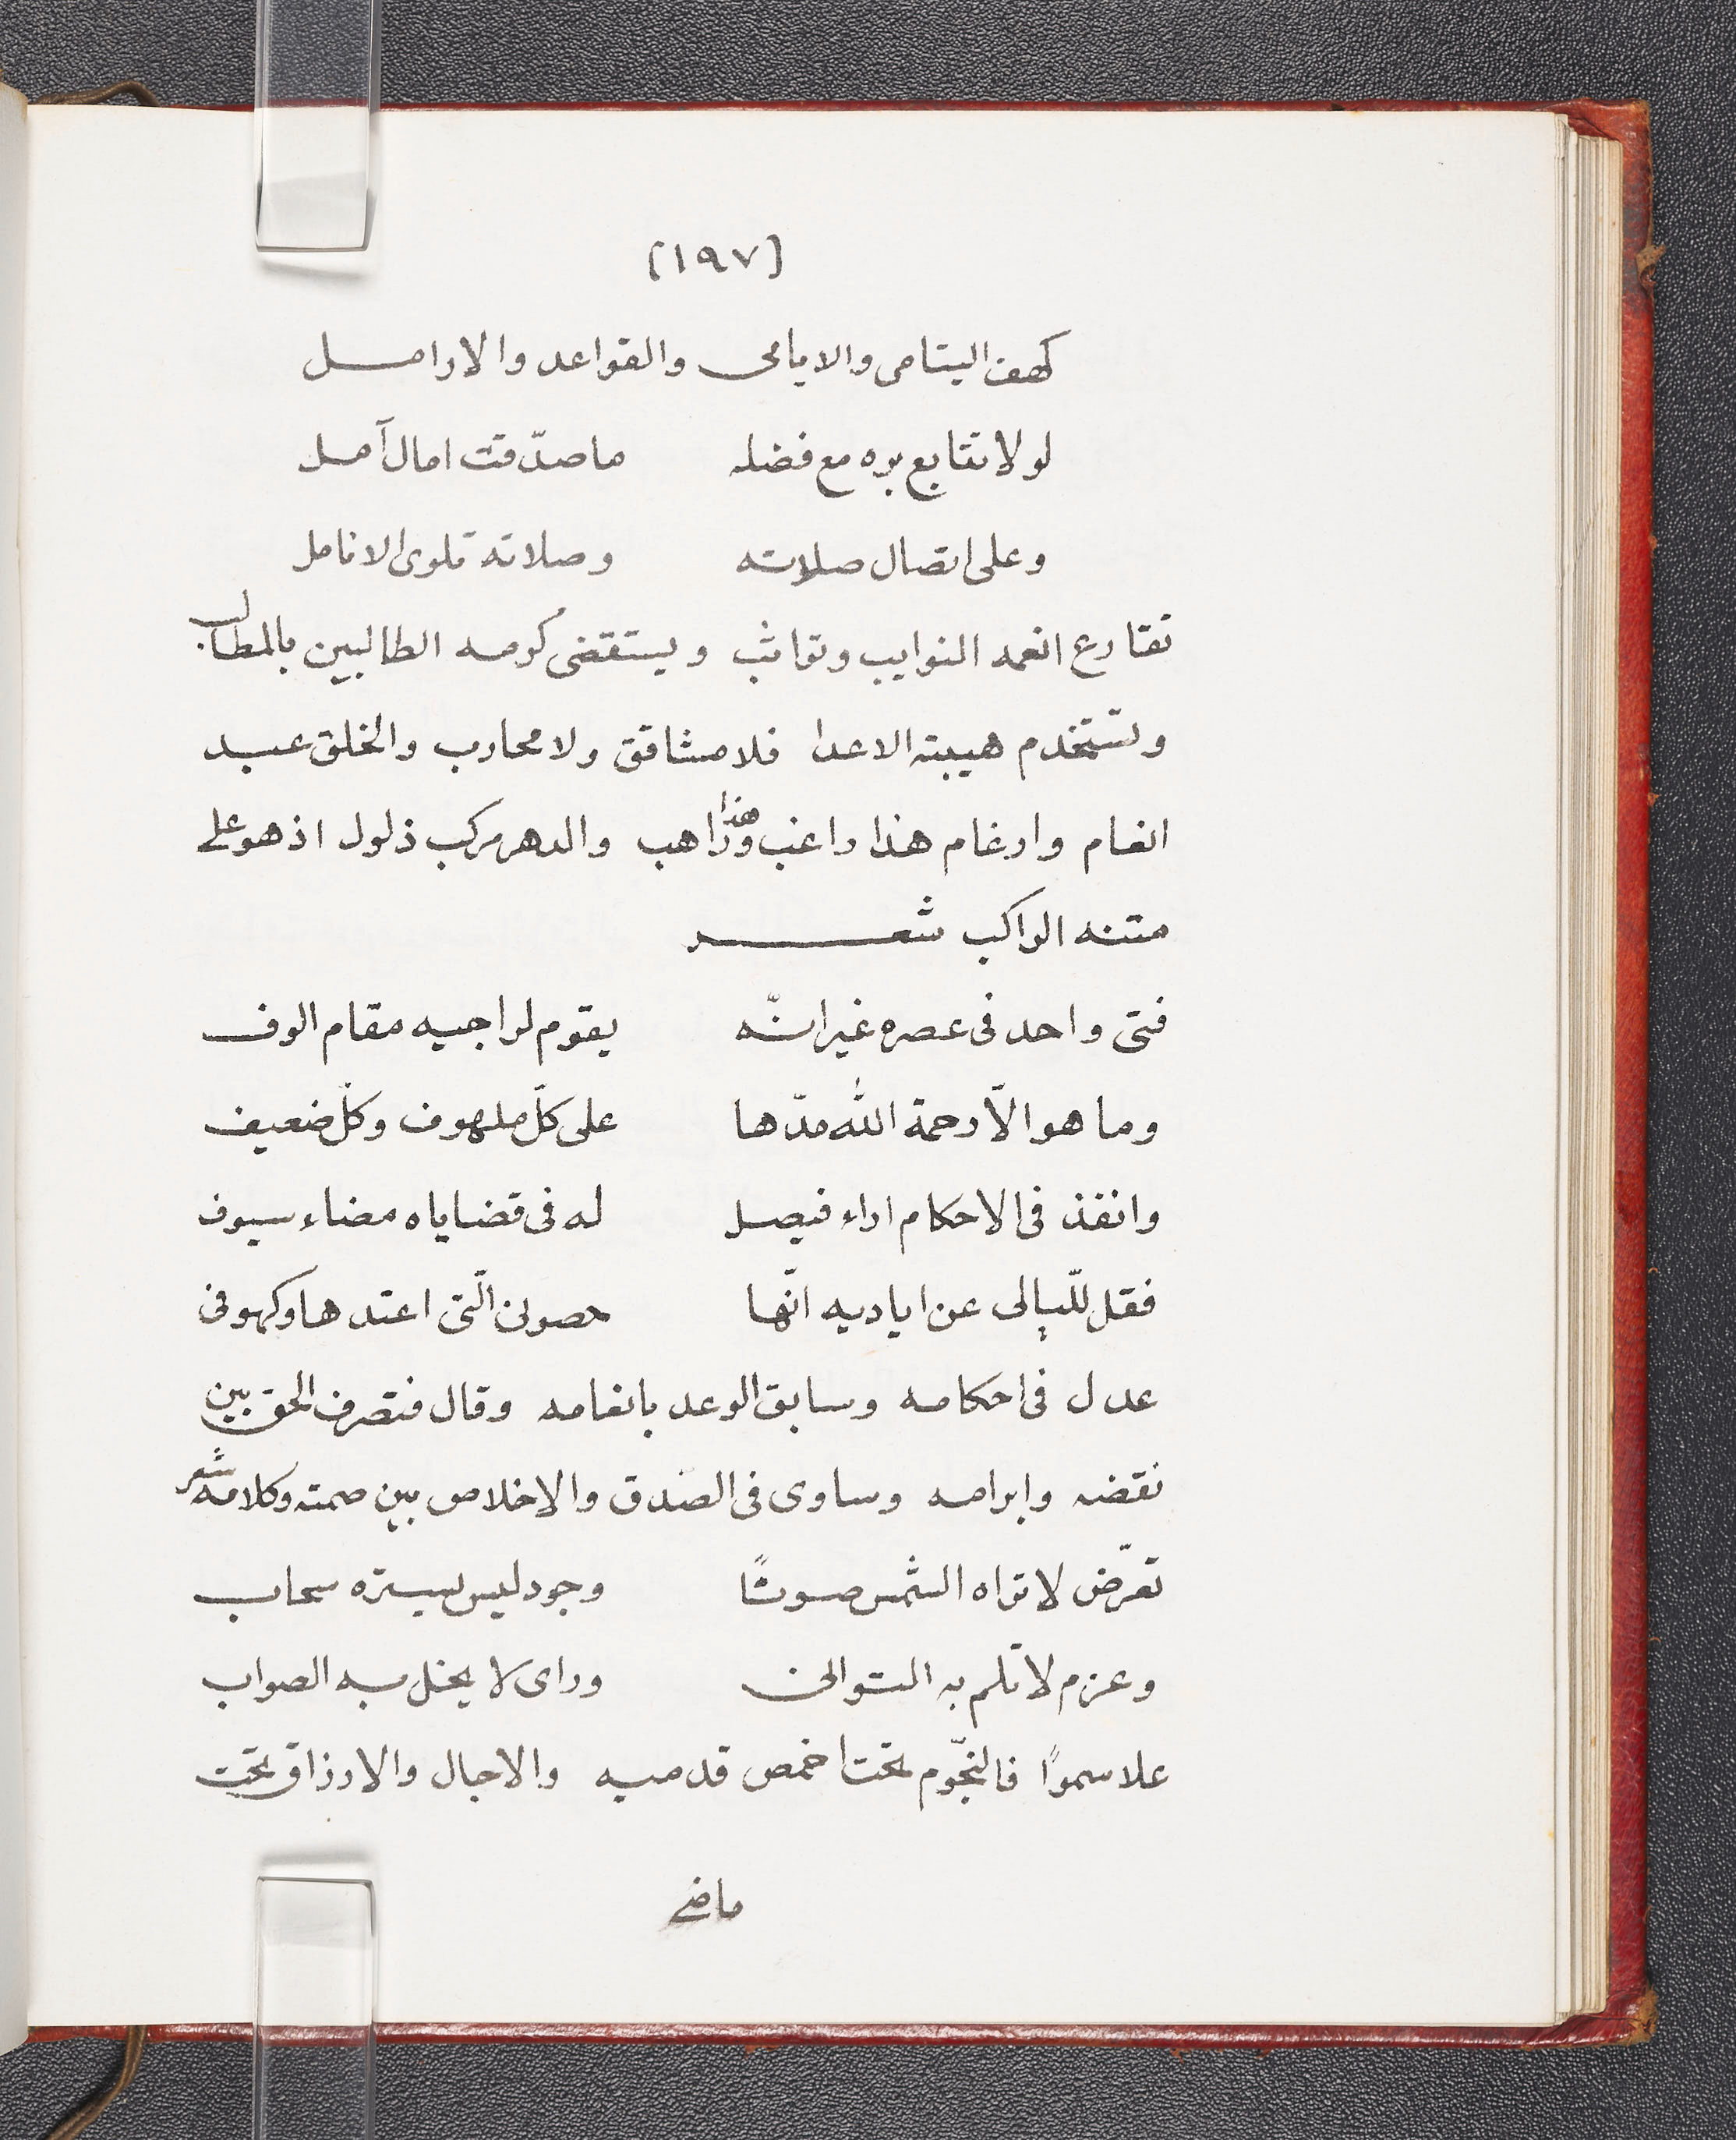 (١٩٧)
كهف اليتامى والايامى والقواعد والارامل
لولا تتابع بره مع فضله ما صدّقت امال آمل
وعلى اتصال صلاته وصلاته تلوى الانامل
تقارع انعمه النوايب وتواثب ويستقضى كرمه الطالبين بالمطالب
وتستخدم هيبته الاعدا فلا مشاقق ولا محارب والخلق عبيد
انعام وارغام هذا راغب وهذا راهب والدهر مركب ذلول اذ هو على
متنه الراكب شعر
فتى واحد فى عصره غير انّه يقوم لراجيه مقام الوف
وما هو الّا رحمة الله مدّها على كلّ ملهوف وكلّ ضعيف
وانفذ فى الاحكام اراء فيصل له فى قضاياه مضاء سيوف
فقل للّيالى عن اياديه انّها حصونى الّتى اعتدها وكهوفى
عدل فى احكامه وسابق الوعد بانعامه وقال فتصرف الحق بين
نقضه وابرامه وساوى فى الصدق والاخلاص بين صمته وكلامه شعر
تعرّض لا تراه الشمس صوتًا وجود ليس يستره سحاب
وعزم لا تلم به التوانى وراى لا يخل به الصواب
علا سموًا فالنجّوم تحت اخمص قدميه والاجال والارزاق تحت
ماضى